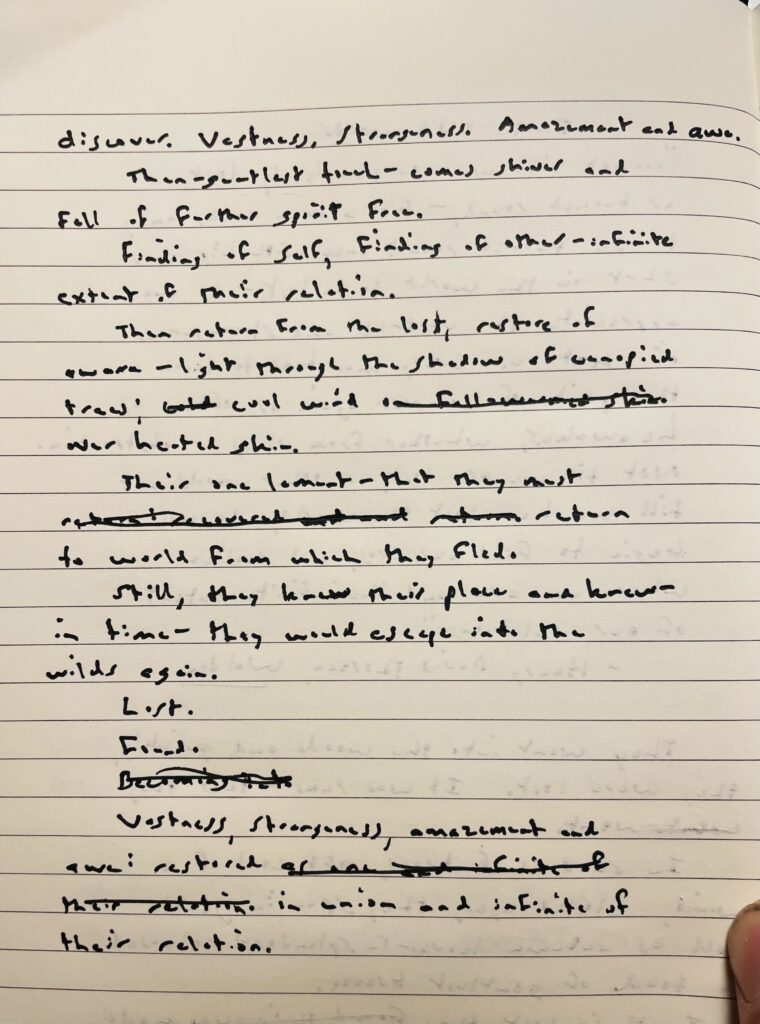 discover. Vastness, strangeness. Amazement and awe.
Then—gentlest touch—comes shiver and
fall of further spirit free.
Finding of self, finding of other—infinite
extent of their relation.
Then return from the lost, restore of
aware—light through the shadow of canopied
trees; cold cool wind on skin.
over heated skin.
Their one lament—that they must
return recovered and and return return
to world from which they fled.
Still, they knew their place and knew—
in time—they would escape into the
wilds again.
Lost.
Found.
Becoming into
Vastness, strangeness, amazement and
awe: restored as one and infinite of
their relation. in union and infinite of
their relation.